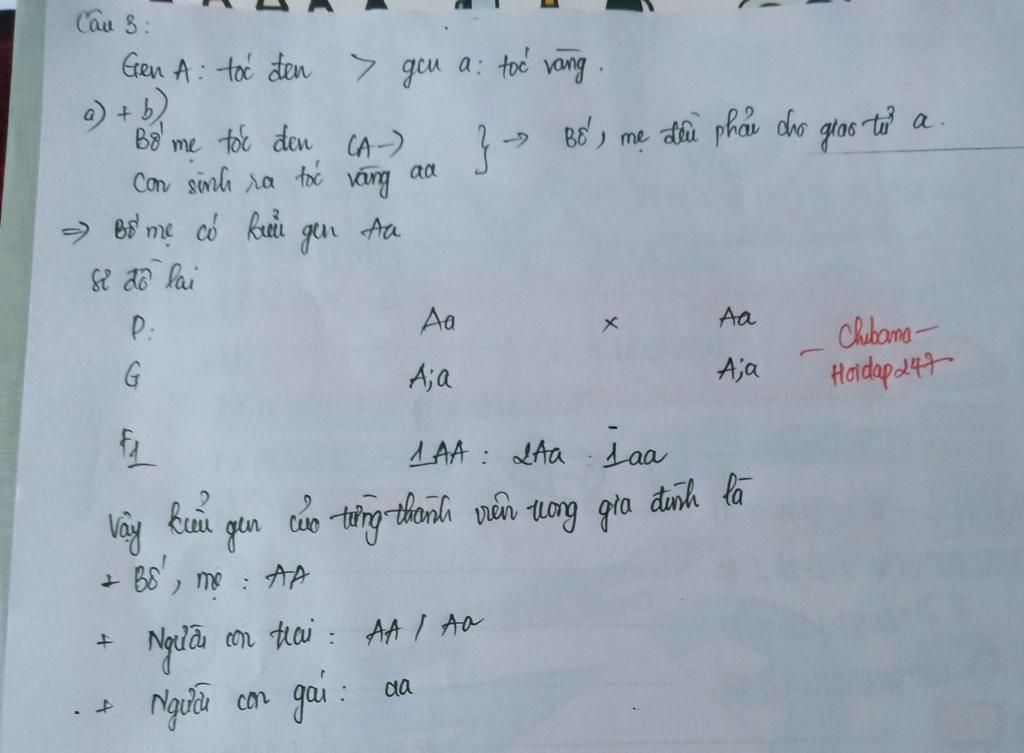 Câu 3:
Gen A: tóc đen > gen a: tóc vàng.
a) + b)
Bố mẹ tóc đen (A-)
Con sinh ra tóc vàng aa
} → Bố, mẹ đều phải cho giao tử a.
⇒ Bố mẹ có kiểu gen Aa
Sơ đồ lai
P: Aa × Aa
G A;a A;a
F1 1AA : 2Aa : 1aa
- Chibama -
Hoidap247
Vậy kiểu gen của từng thành viên trong gia đình là
+ Bố, mẹ : AA
+ Người con trai : AA / Aa
+ Người con gái : aa